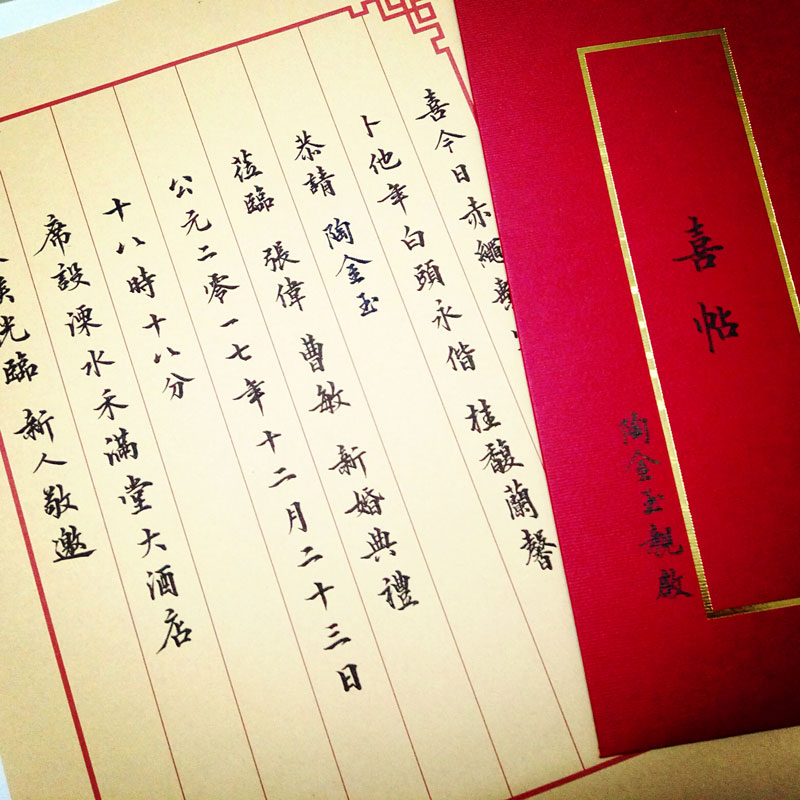 喜今日赤繩繫
卜他年白頭永偕 桂馥蘭馨
恭請 陶金玉
蒞臨 張偉 曹敏 新婚典禮
公元二零一七年十二月二十三日
十八時十八分
席設溧水禾滿堂大酒店
光臨 新人敬邀
喜帖
陶金玉親啟